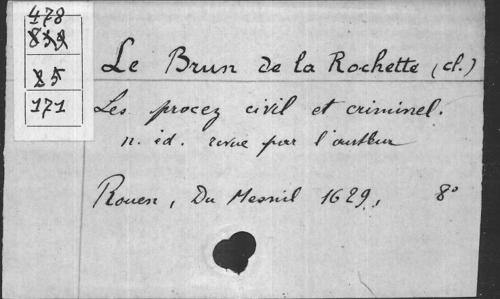 478
25
171
Le Brun de la Rochette (cl.)
Les procez civil et criminel.
n. éd. revue par l'autheur
Rouen, Du Mesnil 1629, 8°